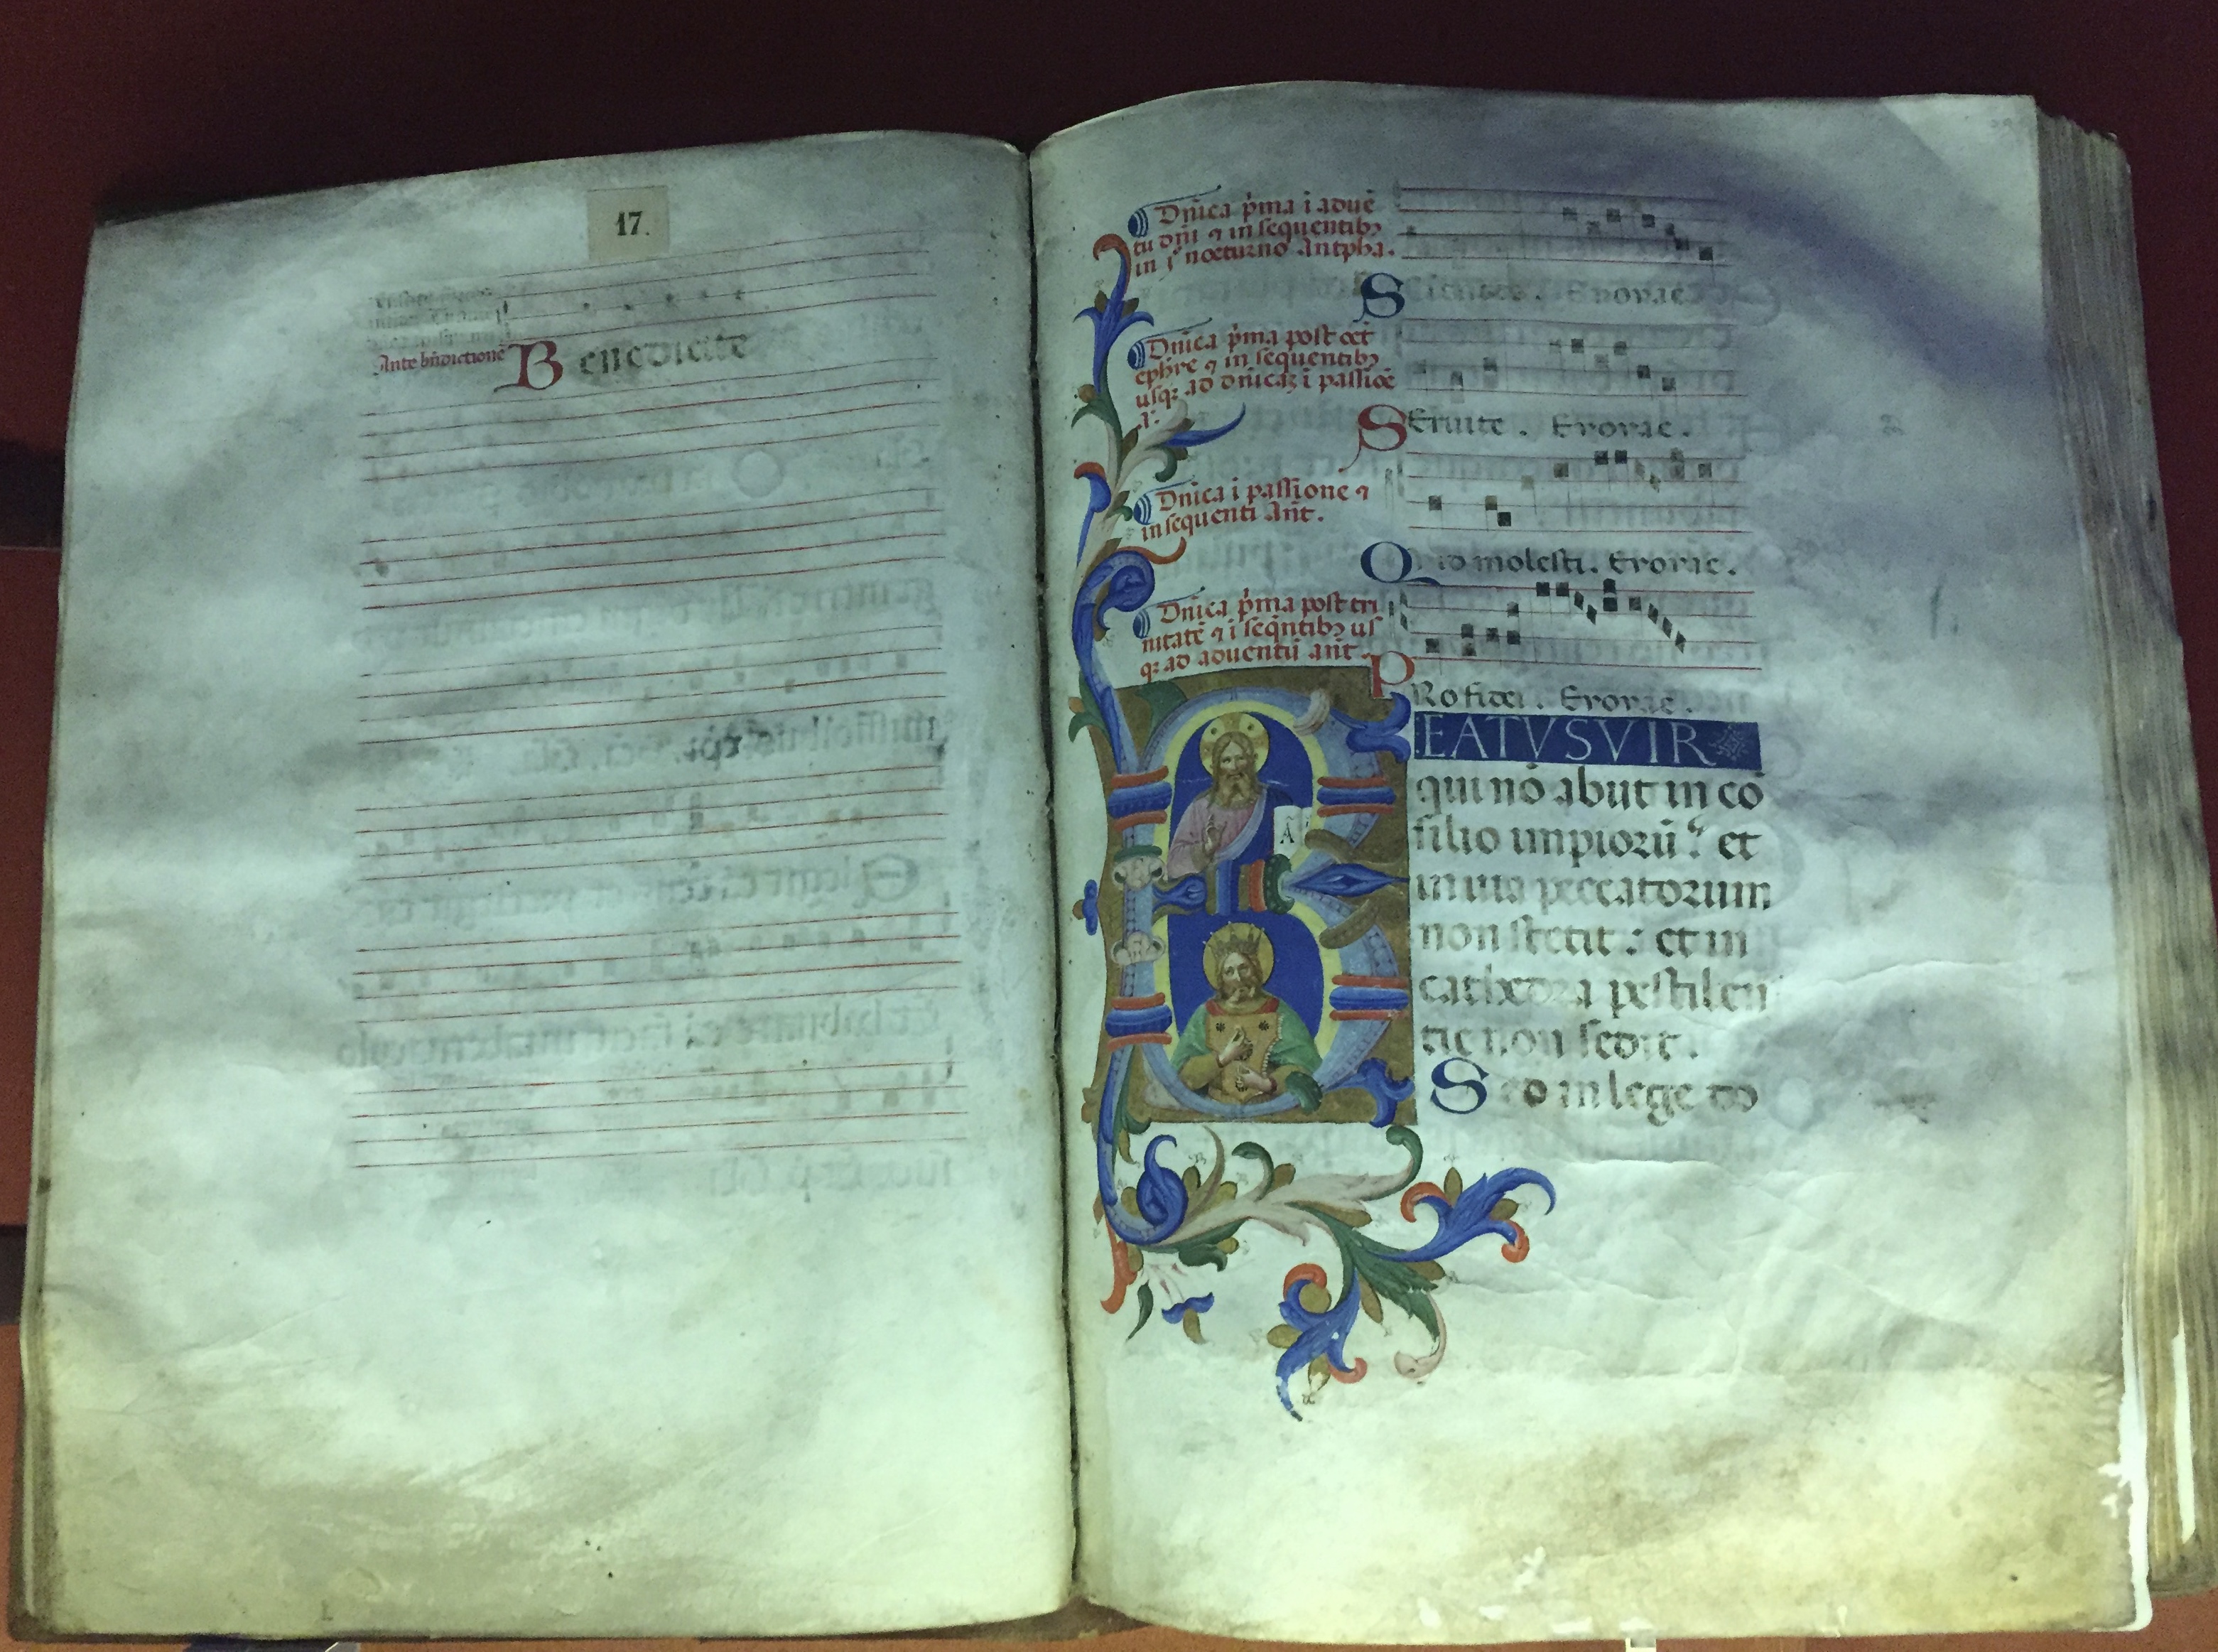 17.
Ante bñdictione
Benedicite
Dñica p̃ma i adue
tu dñi ⁊ in sequentibꝫ
in i° nocturno Antpha.
Euouae
Dñica p̃ma post oct
ephie ⁊ in sequentibꝫ
usqꝫ ad dñicaꝫ i passiõe
.a.
Seruite. Euouae.
Dñica i passione ⁊
in sequenti Añt.
Quid molesti. Euouae.
Dñica p̃ma post tri
nitatẽ ⁊ i seq̃ntibꝫ us
qꝫ ad aduentũ añt.
Pro fidei. Euouae.
Ã
BEATVS VIR
qui nõ abiit in cõ
silio impiorũ: et
in uia peccatorum
non stetit: et in
cathedra pestilen
tie non sedit.
Sed in lege do